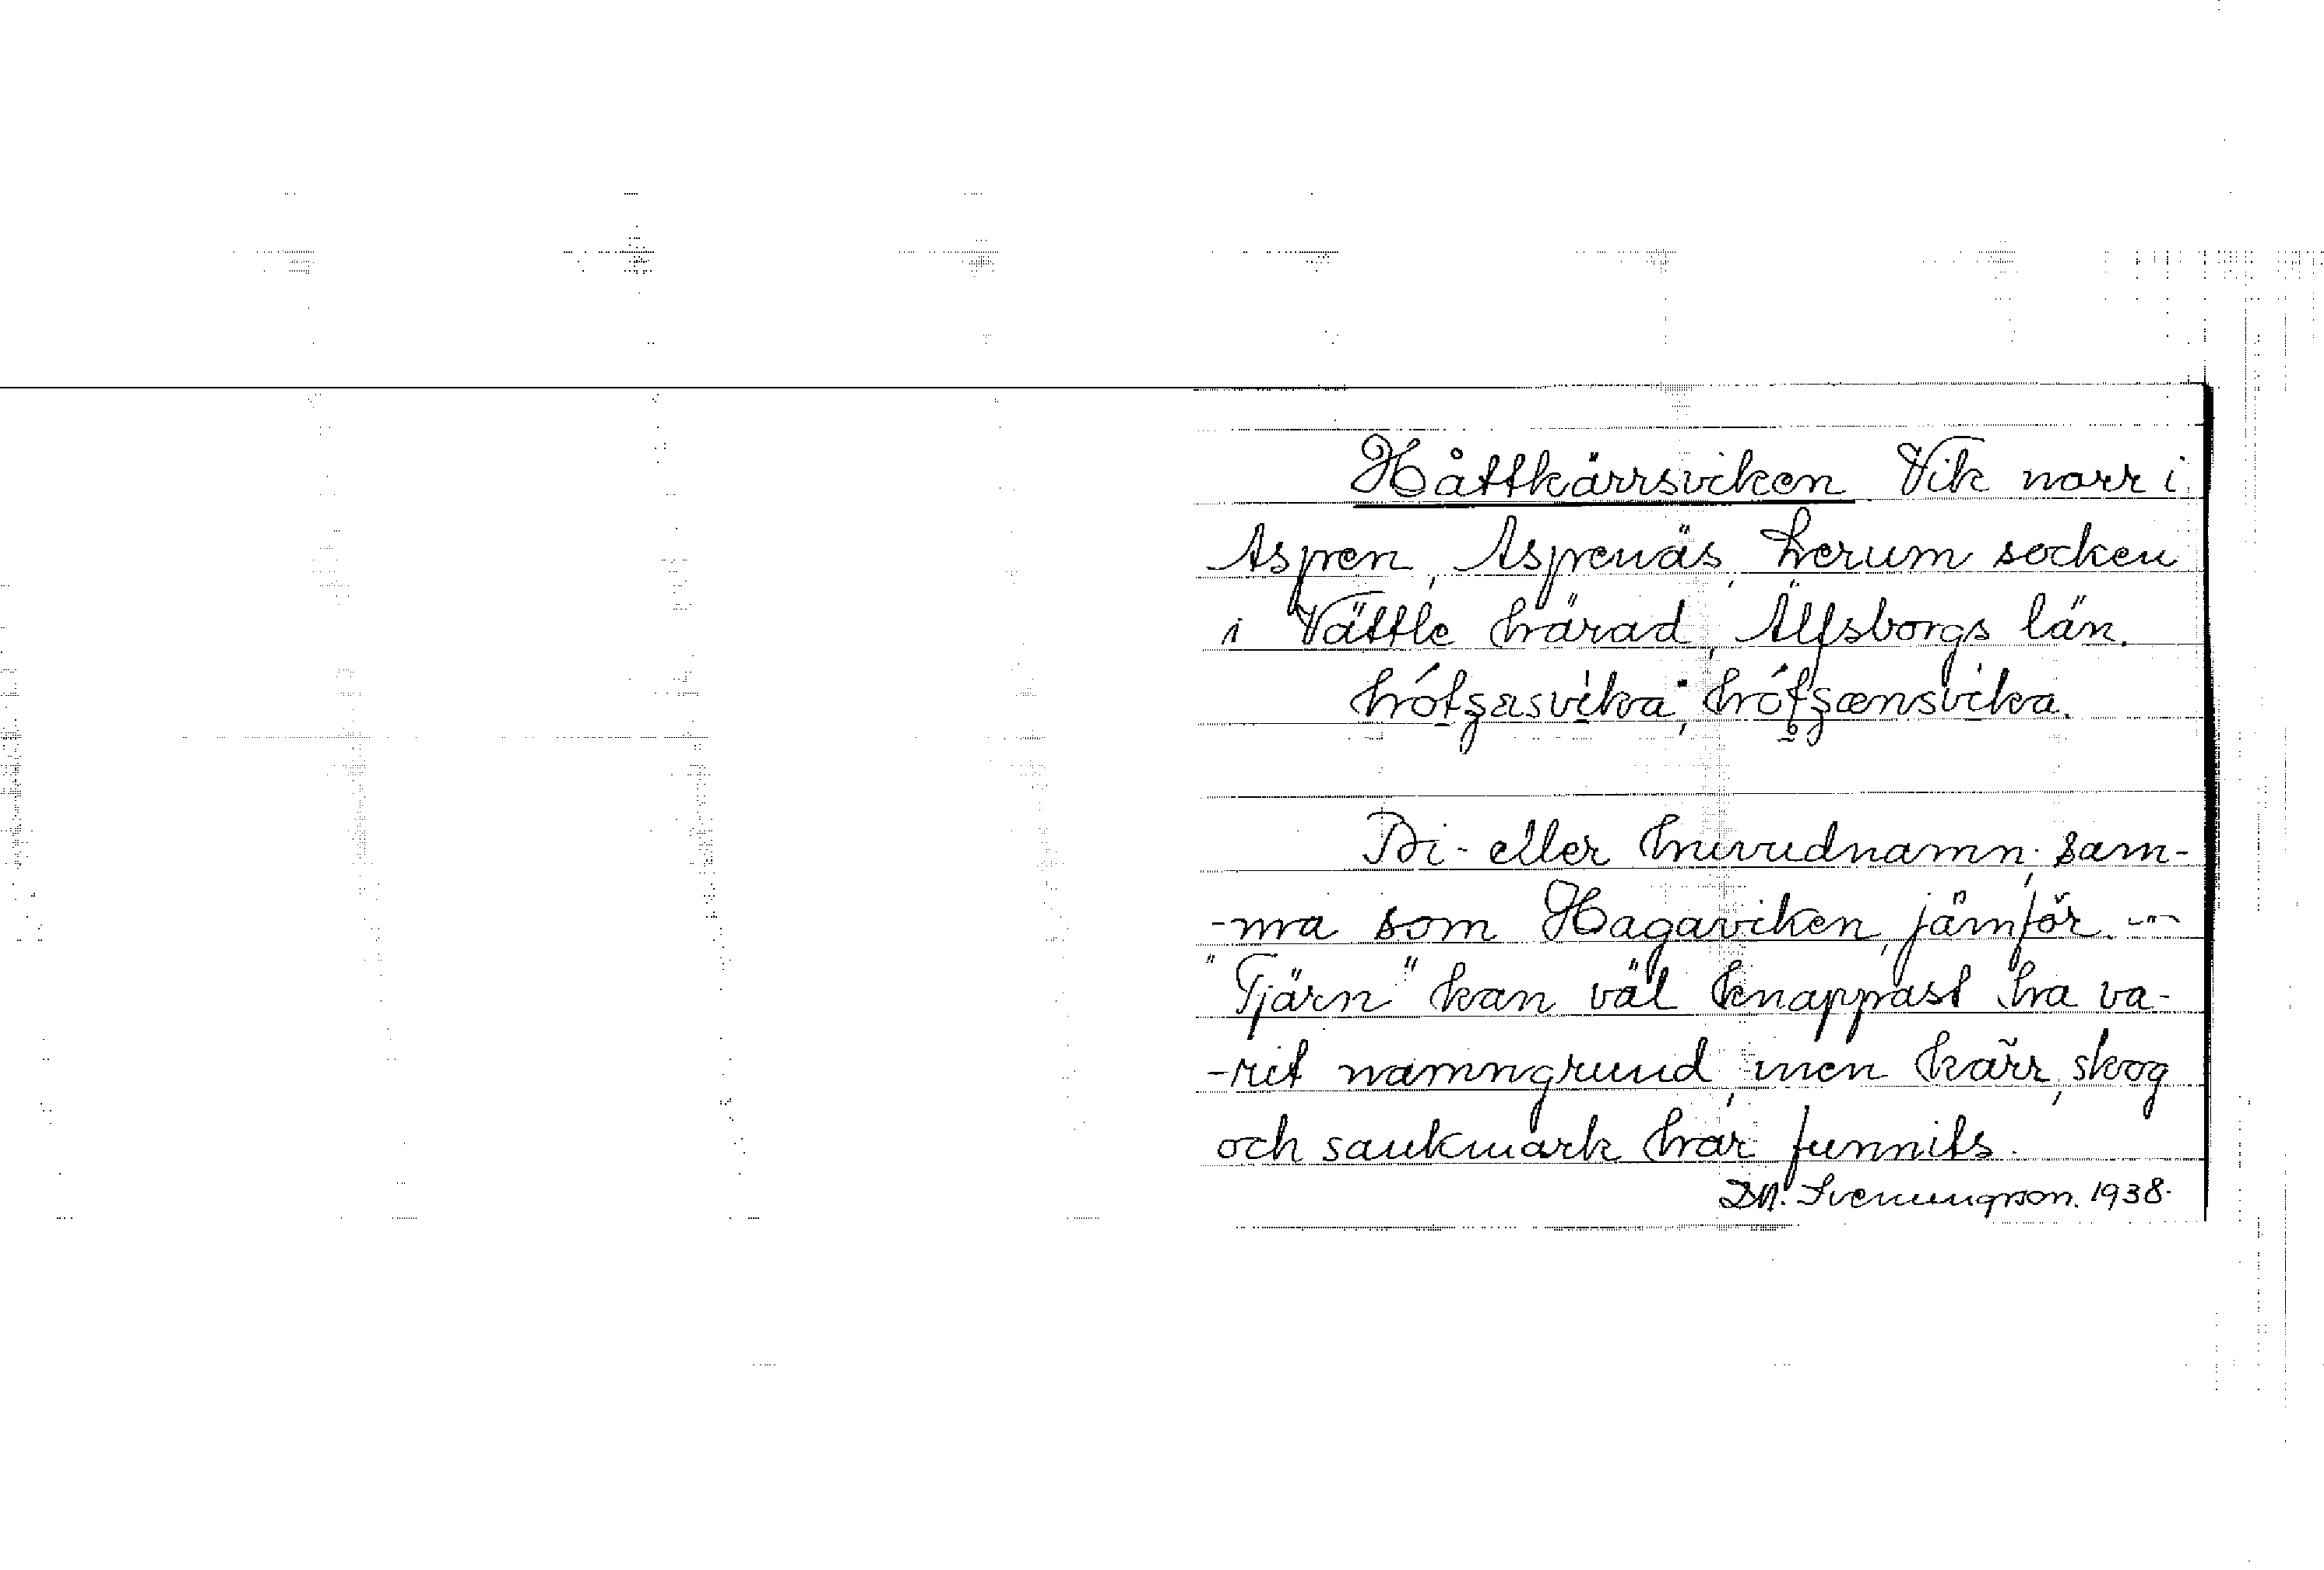 Håttkärrsviken Vik norr i
Aspen, Aspenäs, Lerum socken
i Vättle härad, Älfsborgs län.
Bi- eller huvudnamn, sam-
-ma som Hagaviken, jämför. -"-
"Tjärn" kan väl knappast ha va-
-rit namngrund, men kärr, skog
och sankmark har funnits.
D.N. Svenungson. 1938.